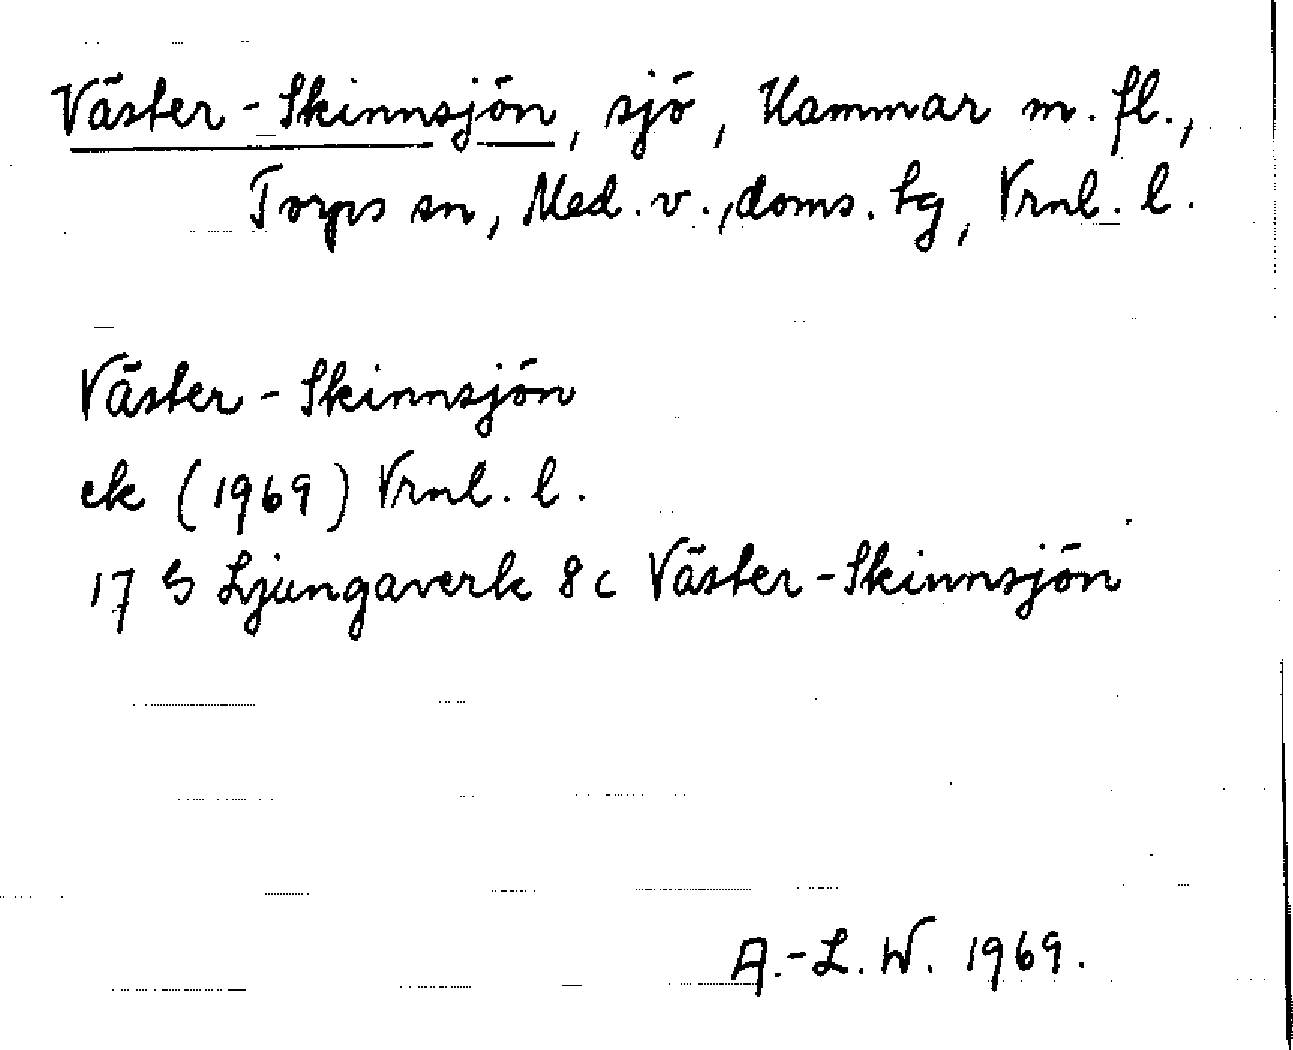 Väster-Skinnsjön, sjö, Hammar m. fl.,
Torps sn, Med. v., doms. tg, Vrnl. l.
Väster-Skinnsjön
ek (1969) Vrnl. l.
17 G Ljungaverk 8 c Väster-Skinnsjön
A.-L. W. 1969.